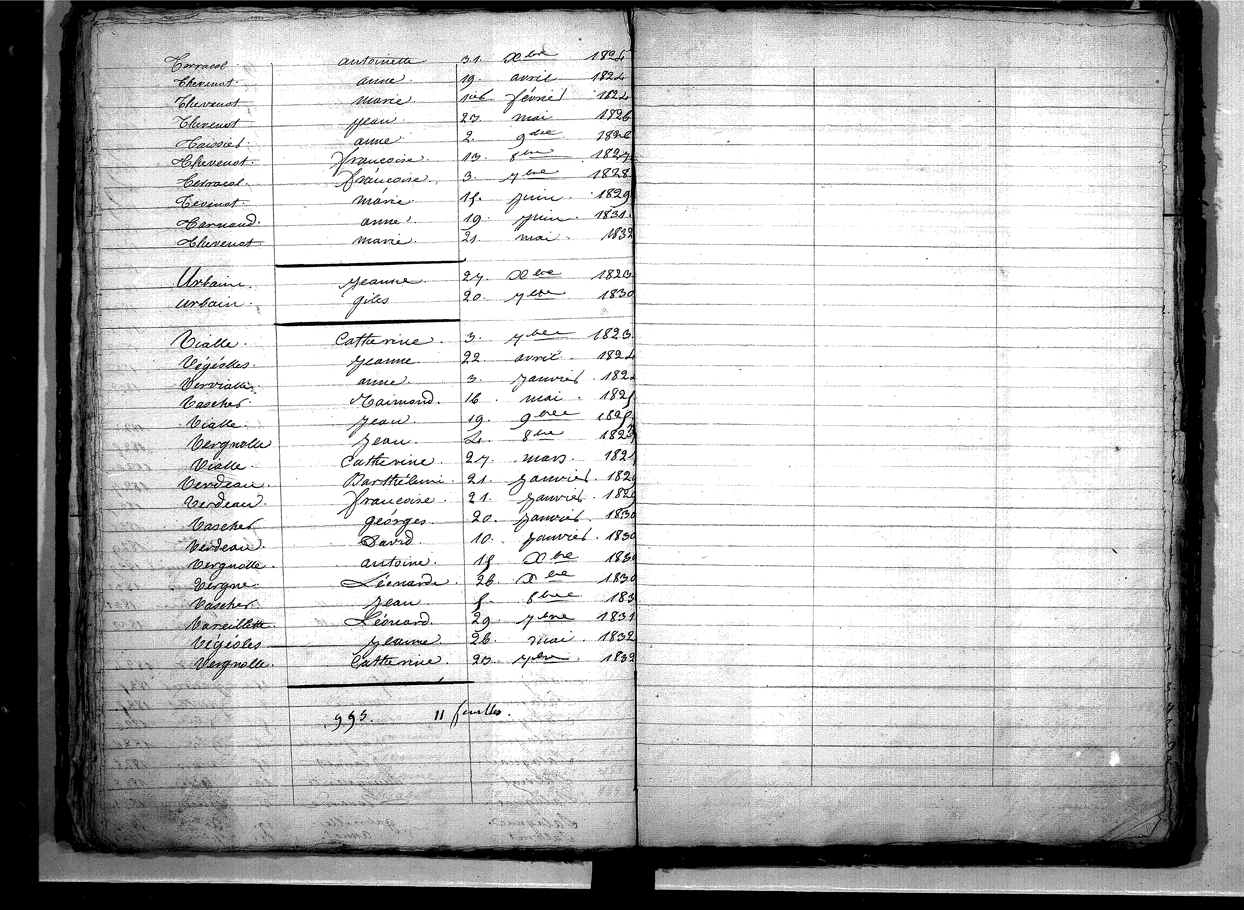 Terracol antoinette 31. Xbre 1824
Thevenot anne 19. avril 1824
Thevenot marie 1er février 1824
Thevenot jean 23 mai 1826
Teissier anne 2 9bre 1826
Thevenot francoise 13. 8bre 1827
Terracol francoise 3. 7bre 1828
Tevenot marie 15. juin 1829
Ternaud anne 19 juin 1831
Thevenot marie 21. mai 1832
Urbain jeanne 27. Xbre 1823
urbain giles 20. 7bre 1830
Vialle Catherine 3. 7bre 1823
Végéolles jeanne 22 avril 1824
Vervialle anne 3. janvier 182
Vascher Raimond. 16 mai 1825
Vialle jean 19. 9bre 1825
Vergnolle jean 4. 8bre 182
Vialle Catherine 27. mars 182
Verdeau Barthélemi 21. janvier 182
Verdeau francoise 21. janvier 182
Vascher georges 20. janvier 1830
Verdeau David 10. janvier 1830
Vergnolle antoine 15 Xbre 1830
Vergne Léonarde 26 Xbre 1830
Vascher jean 5. 8bre 183
Vareillette Léonard 29 7bre 1831
Végéoles jeanne 26. mai 1832
Vergnolle Catherine 23. 7bre 1832
993. 11 feuilles.